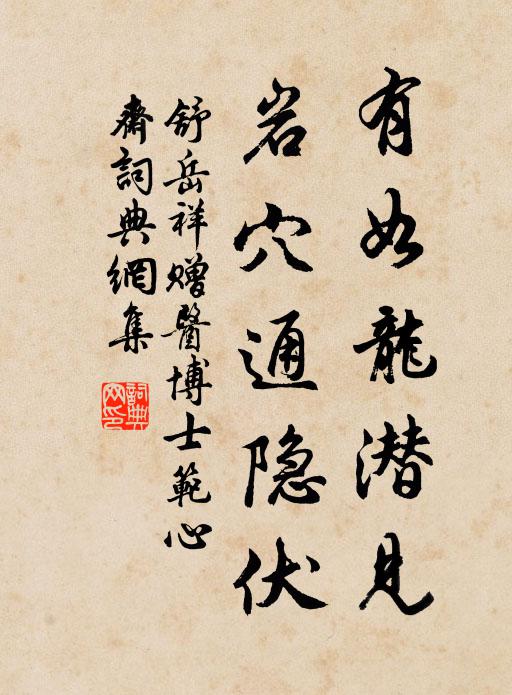 有如龍潜見
岩穴通隐伏
舒岳祥贈醫博士範心
齋詞典網集
詞典网印